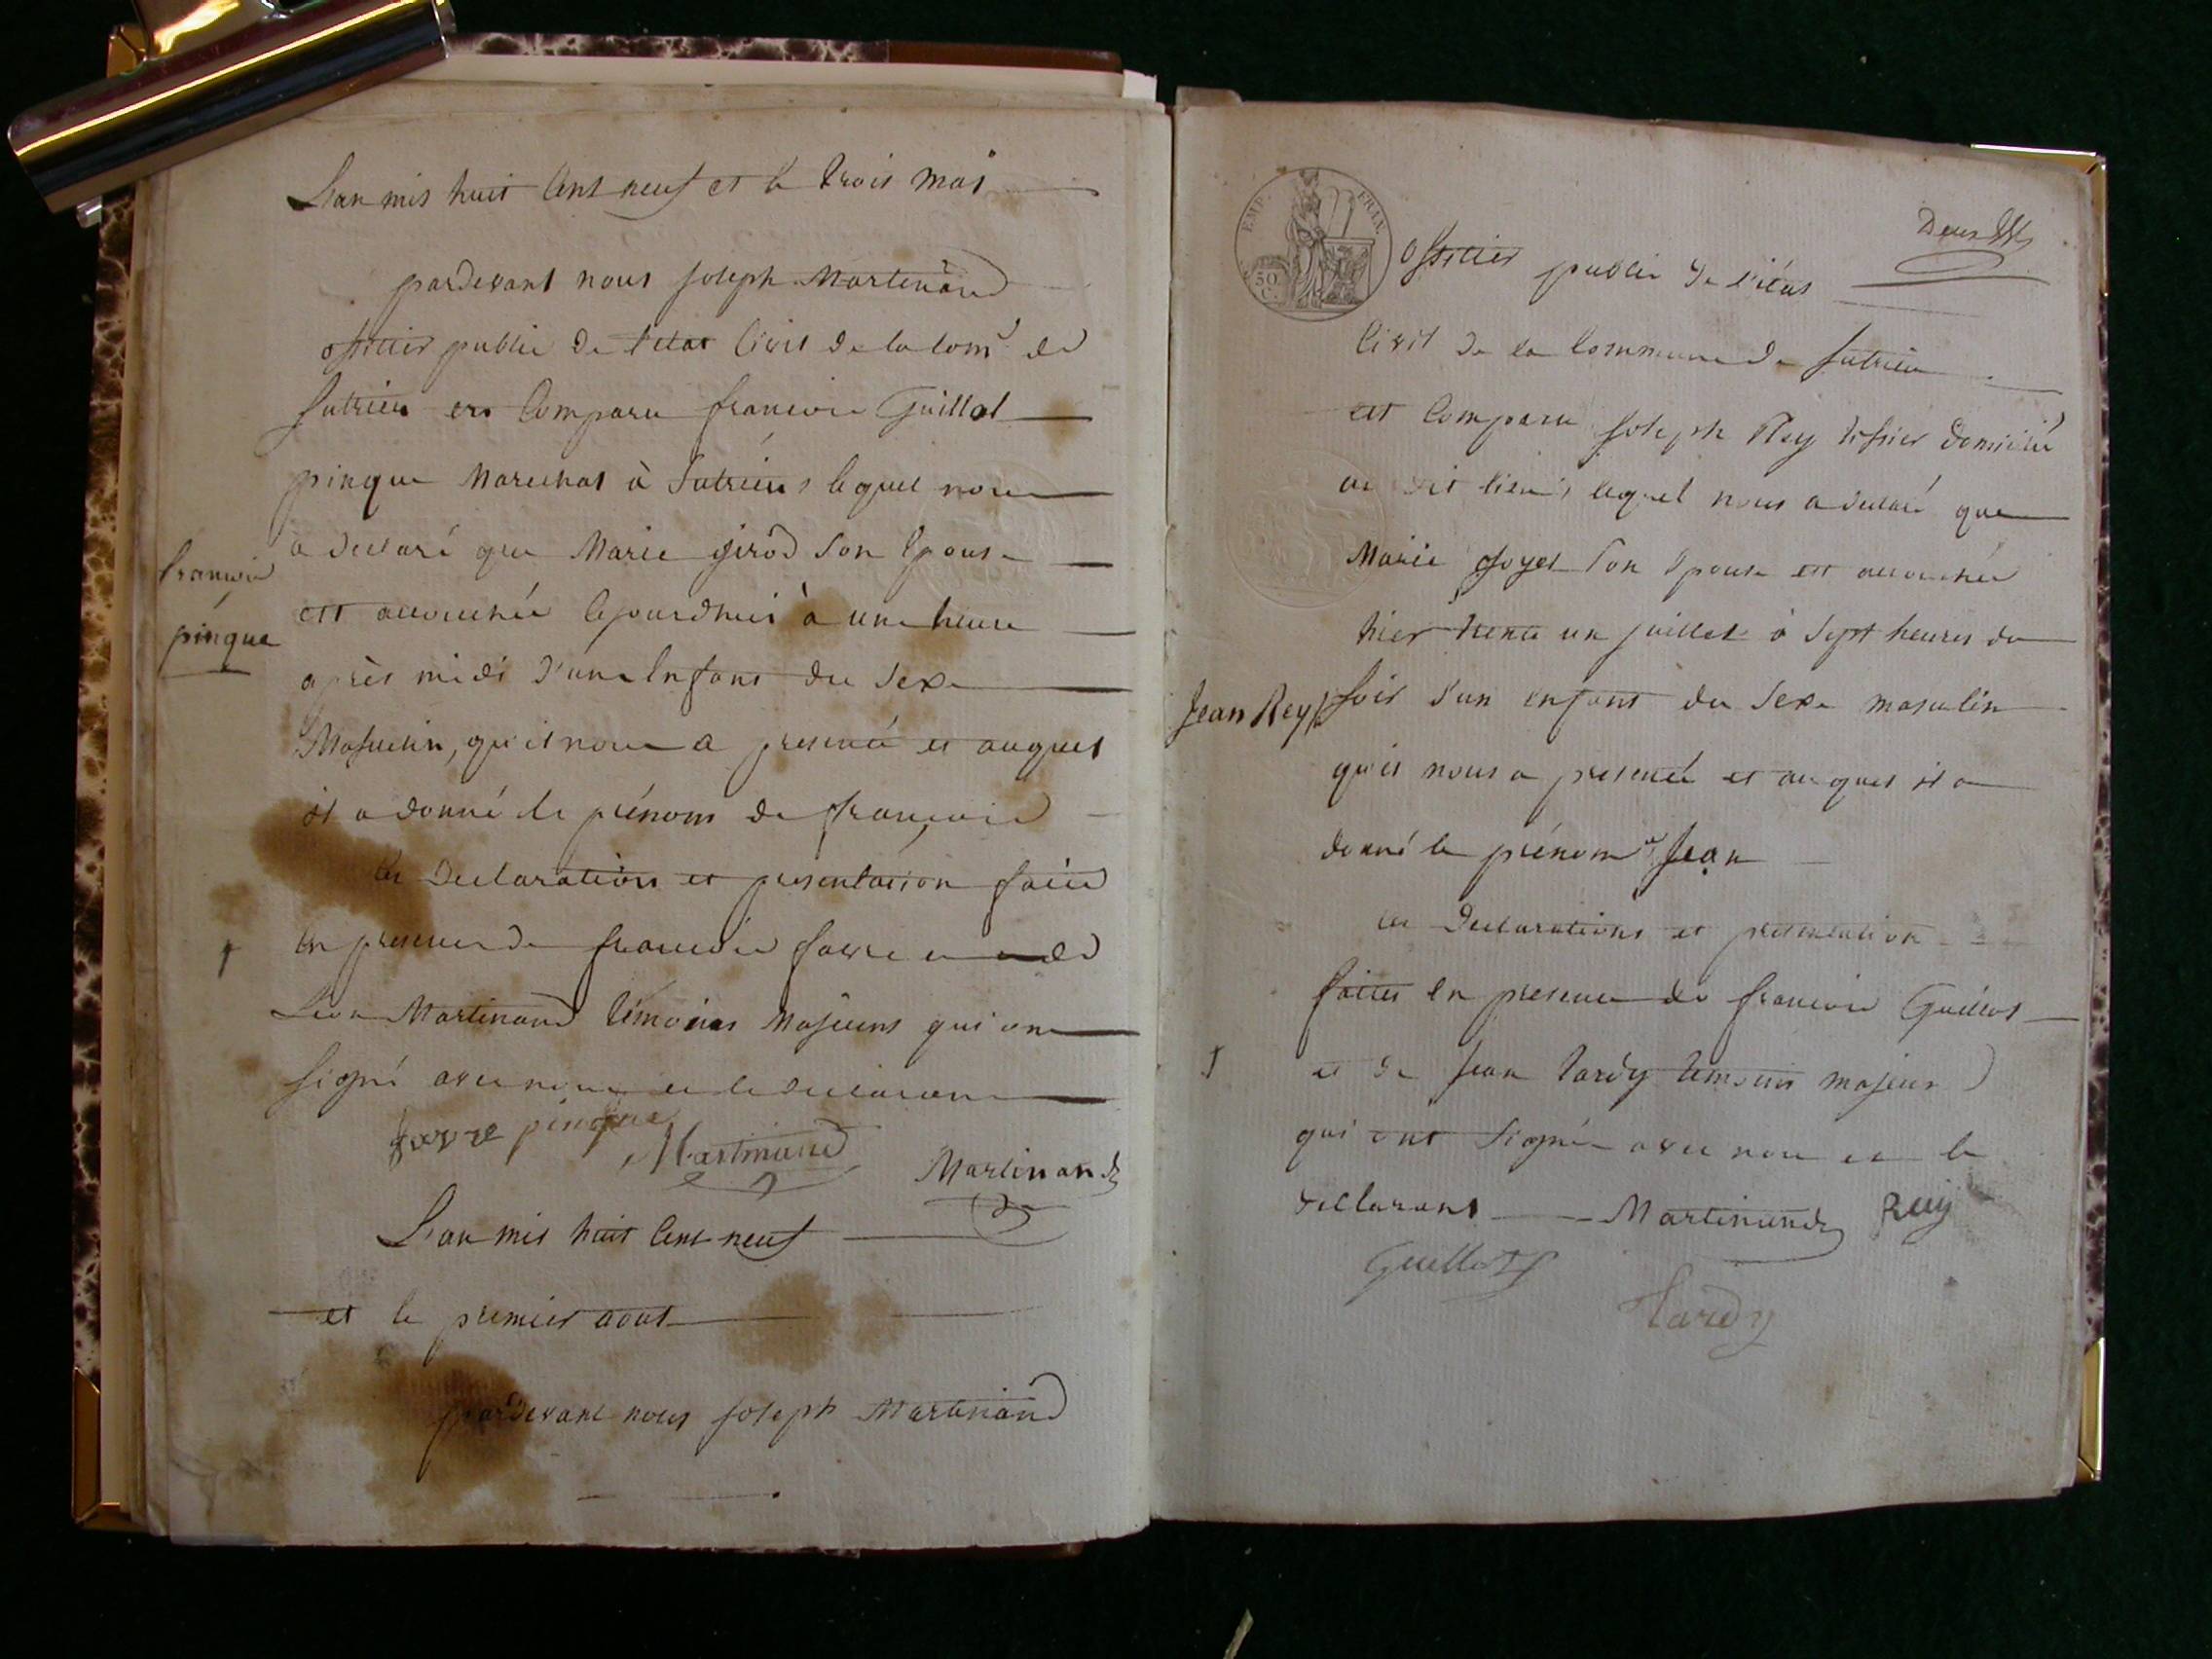 L'an mil huit Cent neuf et le trois mai
pardevant nous joseph Martinand
officier public de l'etat Civil de la Com.e de
Sutrieu est Comparu francois Guillot
pinque Marechal à Sutrieu, lequel nous
a declaré que Marie girod Son Epouse
francois
est accouchée Cejourdhui à une heure
pinque
après midi d'un Enfant du Sexe
Masculin, qu'il nous a presenté et auquel
il a donné le prénom de francois
les declarations et presentation faites
En presence de francois favre et de
Martinand témoins Majeurs qui ont
Signé avec nous et le declarant
favre pinque Martinand
Martinand
L'an mil huit Cent neuf
et le premier aout
pardevant nous joseph Martinand
EMP. FRAN.
50 C.
officier public de l'état
Civil de la Commune de Sutrieu
est Comparu joseph Rey tissier domicilié
au dit lieu, lequel nous a declaré que
Marie goyet Son Epouse est accouchée
hier trente un juillet à Sept heures du
Jean Rey
Soir d'un enfant du Sexe masculin
qu'il nous a presenté et auquel il a
donné le prénom de Jean
les declarations et presentation
faites En presence de francois Guillot
et de Jean tardy temoins majeurs
qui ont Signé avec nous et le
declarant Martinand Rey
Guillot
tardy